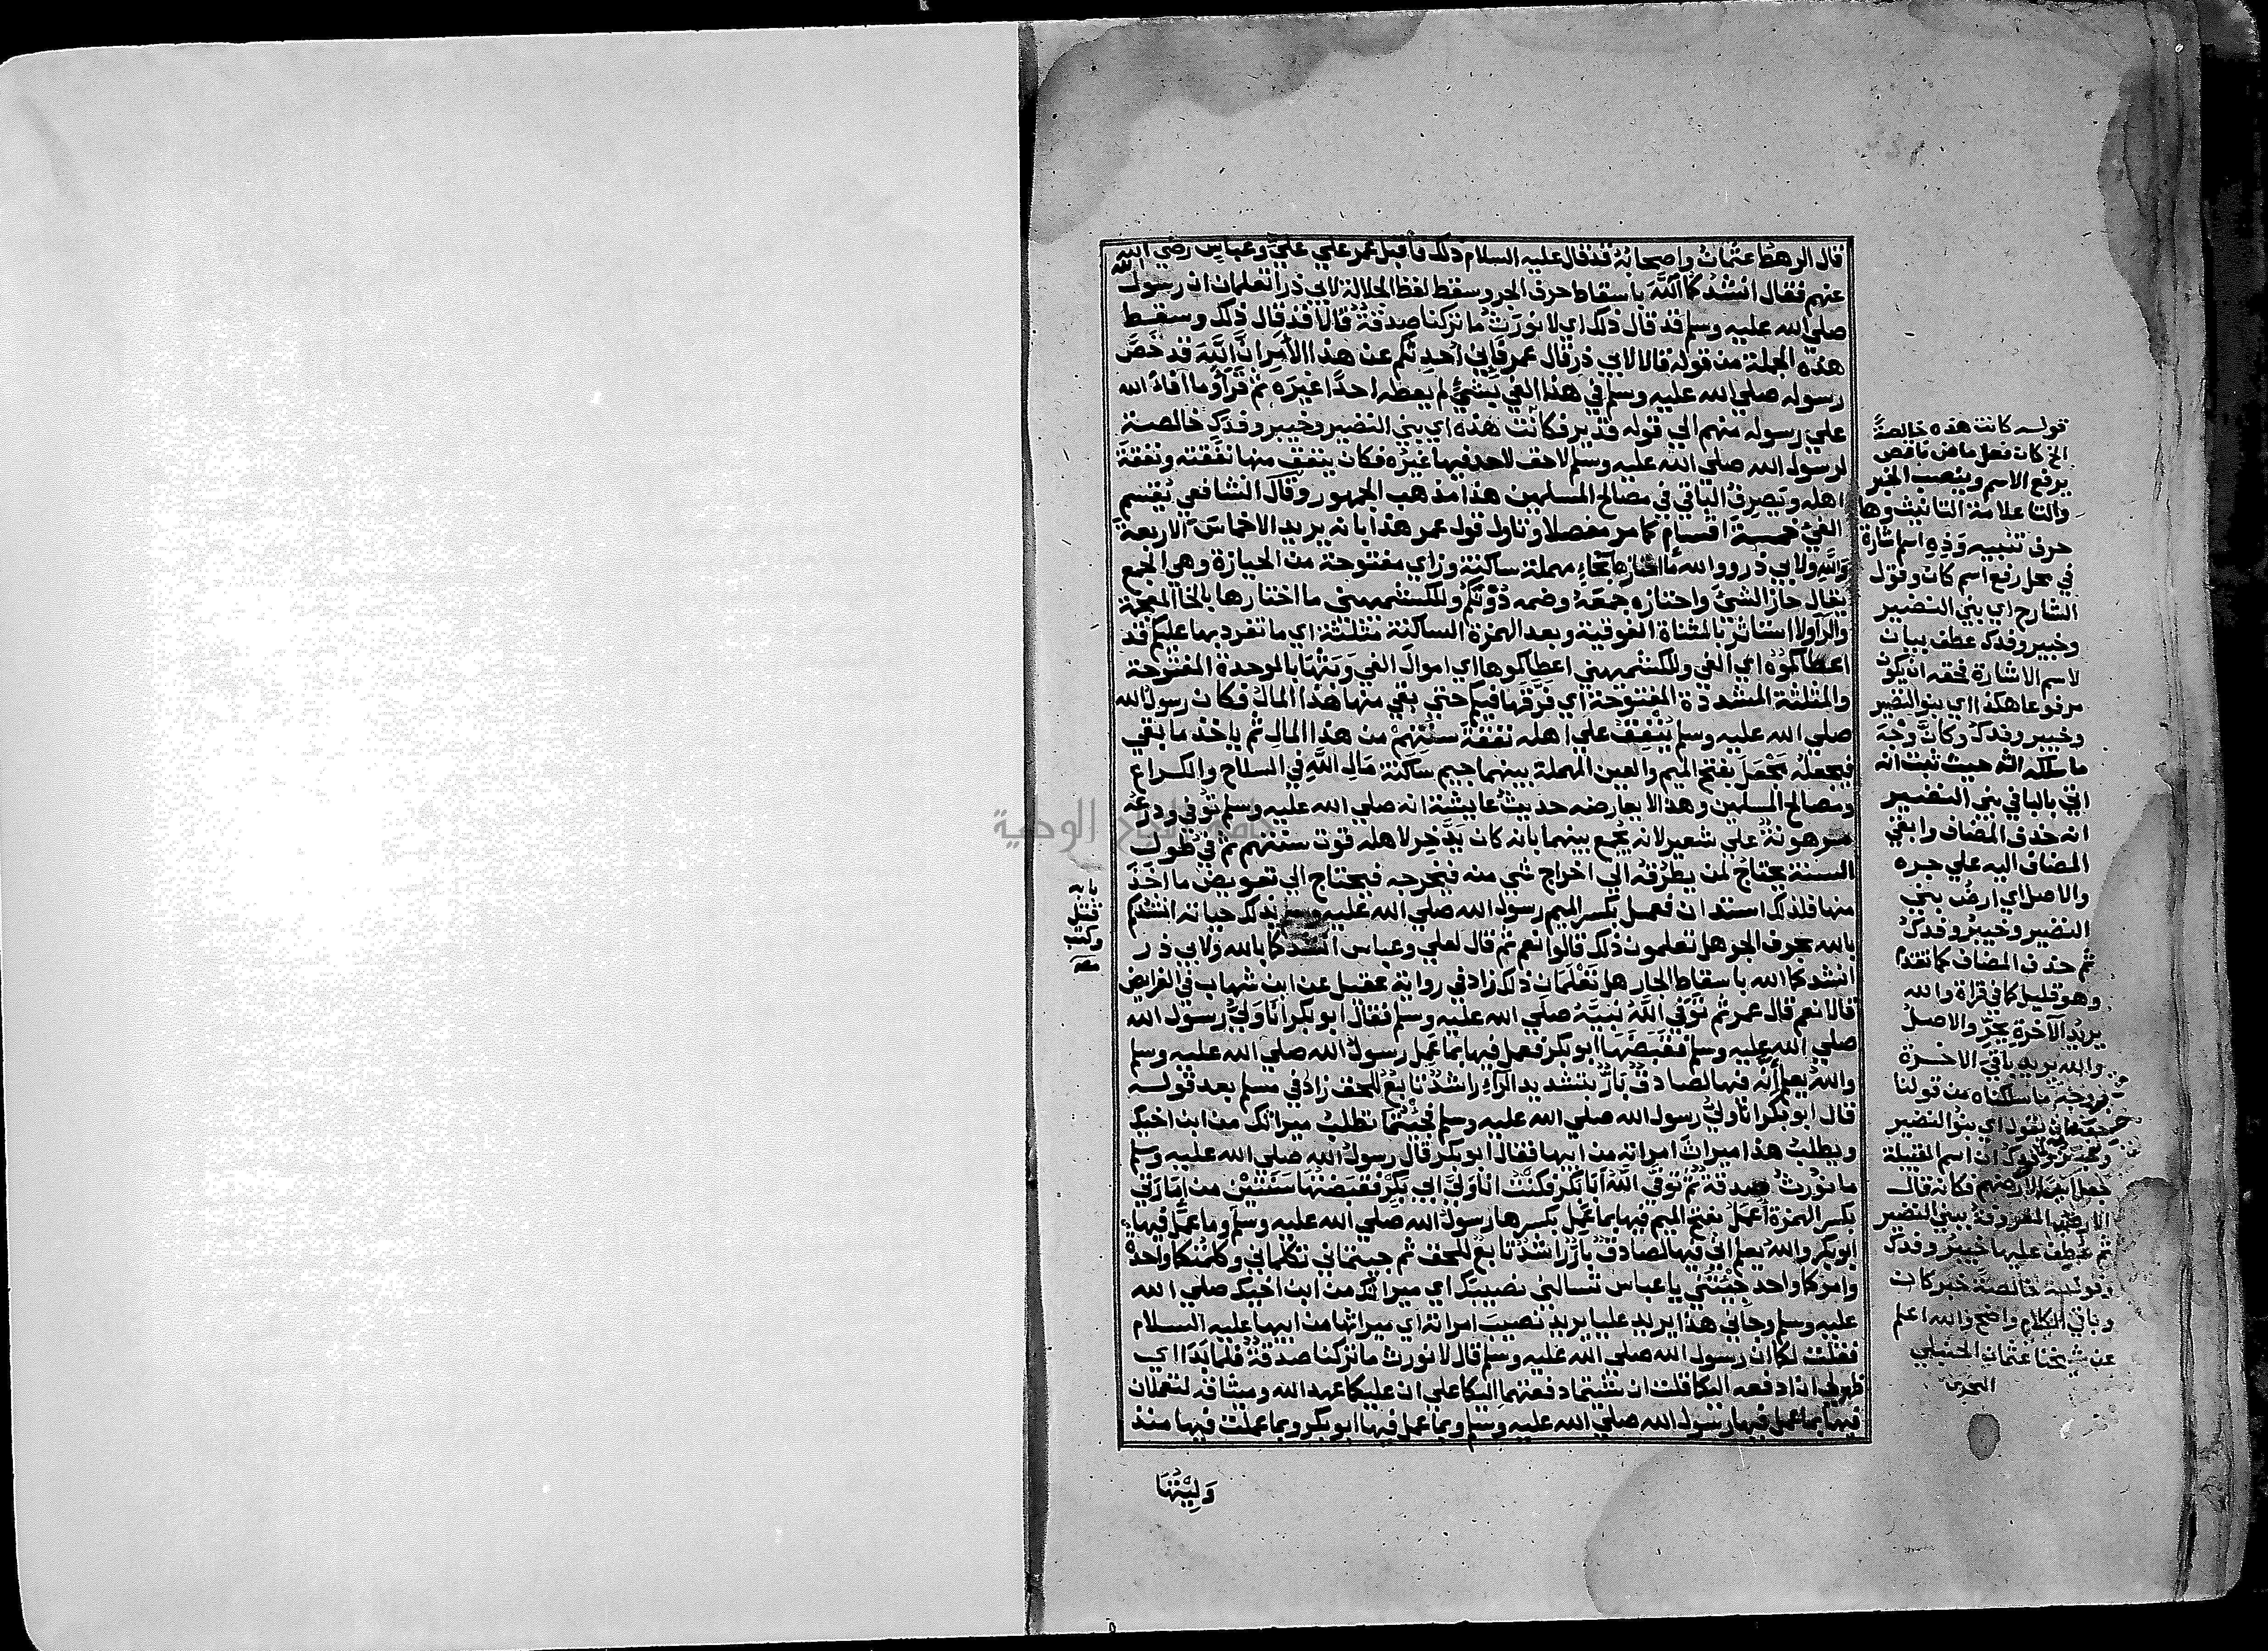 قال الرهط عثمان واصحابه قد قال عليه السلام ذلك فاقبل عمر علي علي وعباس رضي الله
عنهم فقال انشدكما الله باسقاط حرف الجر وسقط لفظ الجلالة لابي ذر اتعلمان ان رسول الله
صلي الله عليه وسلم قد قال ذلك اي لا نورث ما تركنا صدقة قالا قد قال ذلك وسقط
هذه الجملة من قوله قالا لابي ذر قال عمر فاني احدثكم عن هذا الامر ان الله قد خص
رسوله صلي الله عليه وسلم في هذا الفي بشيء لم يعطه احدا غيره ثم قرا وما افاء الله
علي رسوله منهم الي قوله قدير فكانت هذه اي بني النضير وخيبر وفدك خالصة
لرسول الله صلي الله عليه وسلم لا حق لاحد فيها غيره فكان ينفق منها نفقته ونفقة
اهله ويصرف الباقي في مصالح المسلمين هذا مذهب الجمهور وقال الشافعي يقسم
الفي خمسة اقسام كما مر مفصلا وتاول قول عمر هذا بانه يريد الاخماس الاربعة
والله ولابي ذر ووالله ما احتازها بحاء مهملة ساكنة وزاي مفتوحة من الحيازة وهي الجمع
يقال حاز الشي واحتازه جمعه وضمه دونكم وللكشميهني ما اختارها بالخا المعجمة
والرا ولا استاثر بالمثناة الفوقية وبعد الهمزة الساكنة مثلثة اي ما تفرد بها عليكم قد
اعطاكموه اي الفي وللكشميهني اعطاكموها اي اموال الفي وبثها بالموحدة المفتوحة
والمثلثة المشددة المفتوحة اي فرقها فيكم حتي بقي منها هذا المال فكان رسول الله
صلي الله عليه وسلم ينفق علي اهله نفقة سنتهم من هذا المال ثم ياخذ ما بقي
فيجعله مجعل بفتح الميم والعين المهملة بينهما جيم ساكنة مال الله في السلاح والكراع
ومصالح المسلمين وهذا لا يعارضه حديث عايشة انه صلي الله عليه وسلم توفي ودرعه
مرهونة علي شعير لانه يجمع بينهما بانه كان يدخر لاهله قوت سنتهم ثم في طول
السنة يحتاج لمن يطرقه الي اخراج شي منه فيخرجه فيحتاج الي تعويض ما اخذ
منها فلذلك استدان فعمل بكسر الميم رسول الله صلي الله عليه وسلم بذلك حياته انشدكم
بالله بحرف الجر هل تعلمون ذلك قالوا نعم ثم قال لعلي وعباس انشدكما بالله ولابي ذر
انشدكما الله باسقاط الجار هل تعلمان ذلك زاد في رواية عقيل عن ابن شهاب في الفرايض
قالا نعم قال عمر ثم توفي الله نبيه صلي الله عليه وسلم فقال ابو بكر انا ولي رسول الله
صلي الله عليه وسلم فقبضها ابو بكر فعمل فيها بما عمل رسول الله صلي الله عليه وسلم
والله يعلم انه فيها لصادق بار بتشديد الراء راشد تابع للحق زاد في مسلم بعد قوله
قال ابو بكر انا ولي رسول الله صلي الله عليه وسلم فجئتما تطلب ميراثك من ابن اخيك
ويطلب هذا ميراث امراته من ابيها فقال ابو بكر قال رسول الله صلي الله عليه وسلم
ما نورث صدقة ثم توفي الله ابا بكر فكنت انا ولي ابي بكر فقبضتها سنتين من امارتي
بكسر الهمزة اعمل بفتح الميم فيها بما عمل بكسرها رسول الله صلي الله عليه وسلم وما عمل فيها
ابو بكر والله يعلم اني فيها لصادق بار راشد تابع للحق ثم جيتماني تكلماني وكلمتكما واحدة
وامركما واحد جئتني يا عباس تسالني نصيبك اي ميراثك من ابن اخيك صلي الله
عليه وسلم وجاني هذا يريد عليا يريد نصيب امراته اي ميراثها من ابيها عليه السلام
فقلت لكما ان رسول الله صلي الله عليه وسلم قال لا نورث ما تركنا صدقة فلما بدا اي
ظهر لي ان ادفعه اليكما قلت ان شيتما دفعتها اليكما علي ان عليكما عهد الله وميثاقه لتعملان
فيها بما عمل فيها رسول الله صلي الله عليه وسلم وبما عمل فيها ابو بكر وبما عملت فيها منذ
وليتها
قوله كانت هذه خالصة
الخ كان فعل ماض ناقص
يرفع الاسم وينصب الخبر
والتا علامة التانيث وها
حرف تنبيه وذه اسم اشارة
في محل رفع اسم كان وقول
الشارح اي بني النضير
وخيبر وفدك عطف بيان
لاسم الاشارة فحقه ان يكون
مرفوعا هكذا اي بنو النضير
وخيبر وفدك وكان وجه
ما سلكه الشه حيث ثبت انه
اتي باليا في بني النضير
انه حذف المضاف وابقي
المضاف اليه علي جره
والاصل اي ارض بني
النضير وخيبر وفدك
ثم حذف المضاف كما تقدم
وهو قليل كما في قراة والله
يريد الآخرة بجر والاصل
والله يريد باقي الاخرة
ووجه ما سلكناه من قولنا
نقول اي بنو النضير
ان اسم القبيلة
فكانه قال
الارض المعروفة ببني النضير
ثم عطف عليها خيبر وفدك
وقوله خالصة خبر كان
وباقي الكلام واضح والله اعلم
عن شيخنا عثمان الحنبلي
النجدي
جامعة النجاح الوطنية